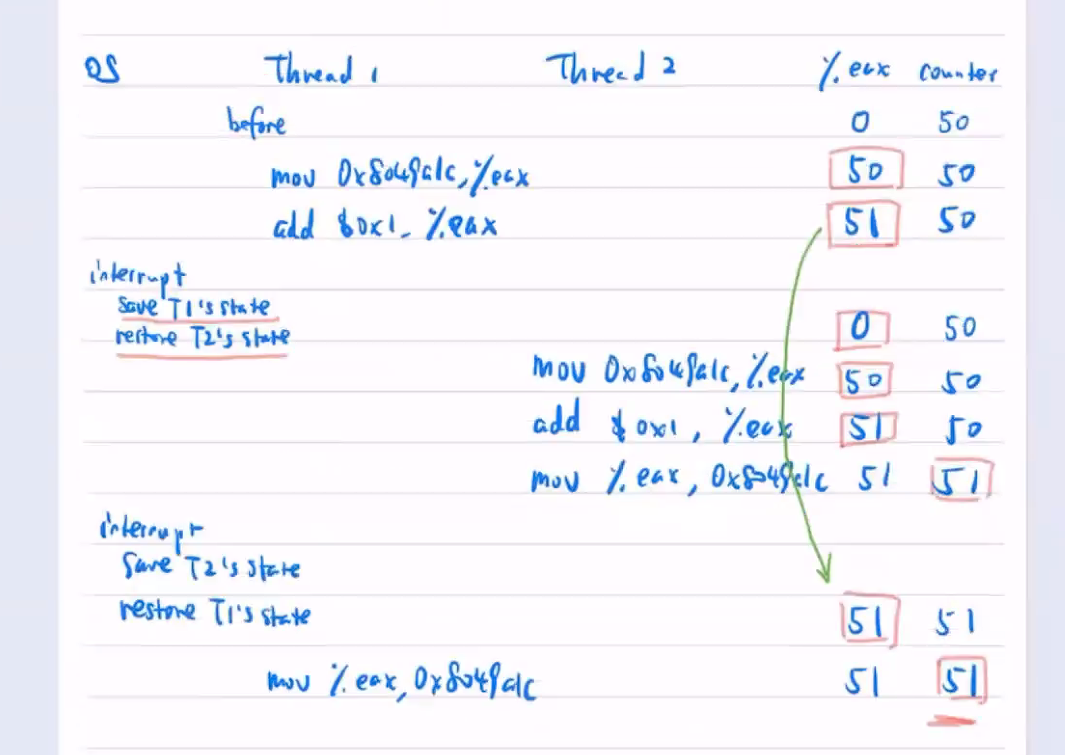 OS Thread 1 Thread 2 %eax counter
before 0 50
mov 0x8049a1c, %eax 50 50
add $0x1, %eax 51 50
interrupt
save T1's state
restore T2's state 0 50
mov 0x8049a1c, %eax 50 50
add $0x1, %eax 51 50
mov %eax, 0x8049a1c 51 51
interrupt
save T2's state
restore T1's state 51 51
mov %eax, 0x8049a1c 51 51